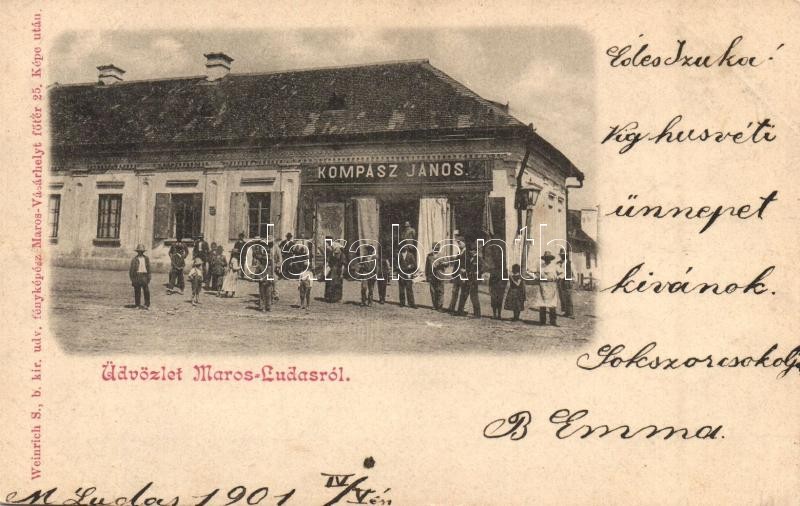 Weinrich S., b. kir. udv. fényképész Maros-Vásárhelyt főtér 25. Képe után.
KOMPÁSZ JÁNOS.
darabanth.com
Üdvözlet Maros-Ludasról.
Édes Izuka!
Vig husvéti
ünnepet
kivánok.
Sokszor csokolja
B Emma.
M Ludas 1901 IV/V én